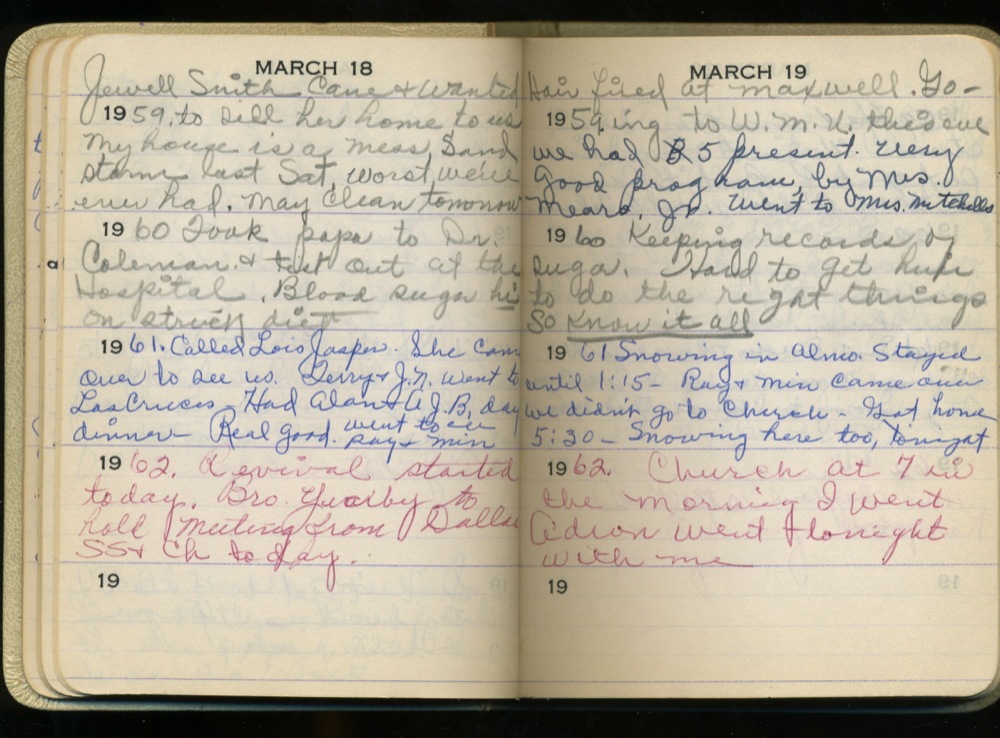 MARCH 18
Jewell Smith Came & wanted
1959. to sell her home to us
My house is a mess, Sand
storm last Sat, worst we've
ever had. May clean tomorrow
1960 Took papa to Dr.
Coleman & test out at the
Hospital. Blood suga hi
on strick diet
1961. Called Lois Jasper. She came
over to see us. Gerry & J.N. went to
Las Cruces - Had Alan & A.J.B, day
dinner - Real good. went to see
Ray & Min
1962. Revival started
today. Bro. Yearby to
hold Meeting from Dallas
SS & Ch today.
19
MARCH 19
Hair fixed at maxwell. Go-
1959. ing to W.M.U. this eve
we had 5 present. very
good program, by Mrs.
Mears, Jr. Went to Mrs. Mitchells
1960 Keeping records of
suga. Hard to get him
to do the right things
So Know it all
1961 Snowing in Almo. Stayed
until 1:15 - Ray & Min came over
we didn't go to Church - Got home
5:30 - Snowing here too, tonight
1962. Church at 7 in
the morning I went
Adron went tonight
with me
19